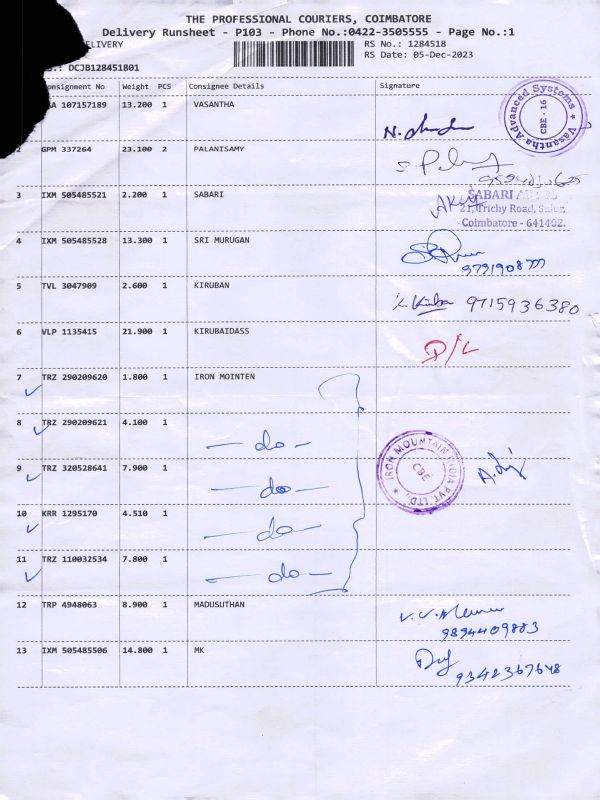 THE PROFESSIONAL COURIERS, COIMBATORE
Delivery Runsheet - P103 - Phone No.:0422-3505555 - Page No.:1
DELIVERY
RS No.: 1284518
RS Date: 05-Dec-2023
DCJB128451801
Consignment No Weight PCS Consignee Details Signature
107157189 13.200 1 VASANTHA
Vasantha Advanced Systems
CBE - 16
2 GPM 337264 23.100 2 PALANISAMY
3 IXM 505485521 2.200 1 SABARI
SABARI
21, Trichy Road, Sulur,
Coimbatore - 641402.
4 IXM 505485528 13.300 1 SRI MURUGAN
5 TVL 3047909 2.600 1 KIRUBAN
9715936380
6 VLP 1135415 21.900 1 KIRUBAIDASS
D/L
7 TRZ 290209620 1.800 1 IRON MOINTEN
8 TRZ 290209621 4.100 1 — do —
9 TRZ 320528641 7.900 1 — do —
IRON MOUNTAIN INDIA PVT. LTD.
CBE
10 KRR 1295170 4.510 1 — do —
11 TRZ 110032534 7.800 1 — do —
12 TRP 4948063 8.900 1 MADUSUTHAN
9894409883
13 IXM 505485506 14.800 1 MK
9342367648